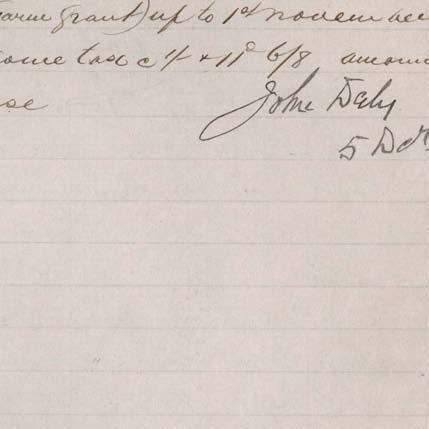 Farm Grant) up to 1st November
Income tax @ 1/- & 11d 6/8 amoun
se
John Daly
5 Dc